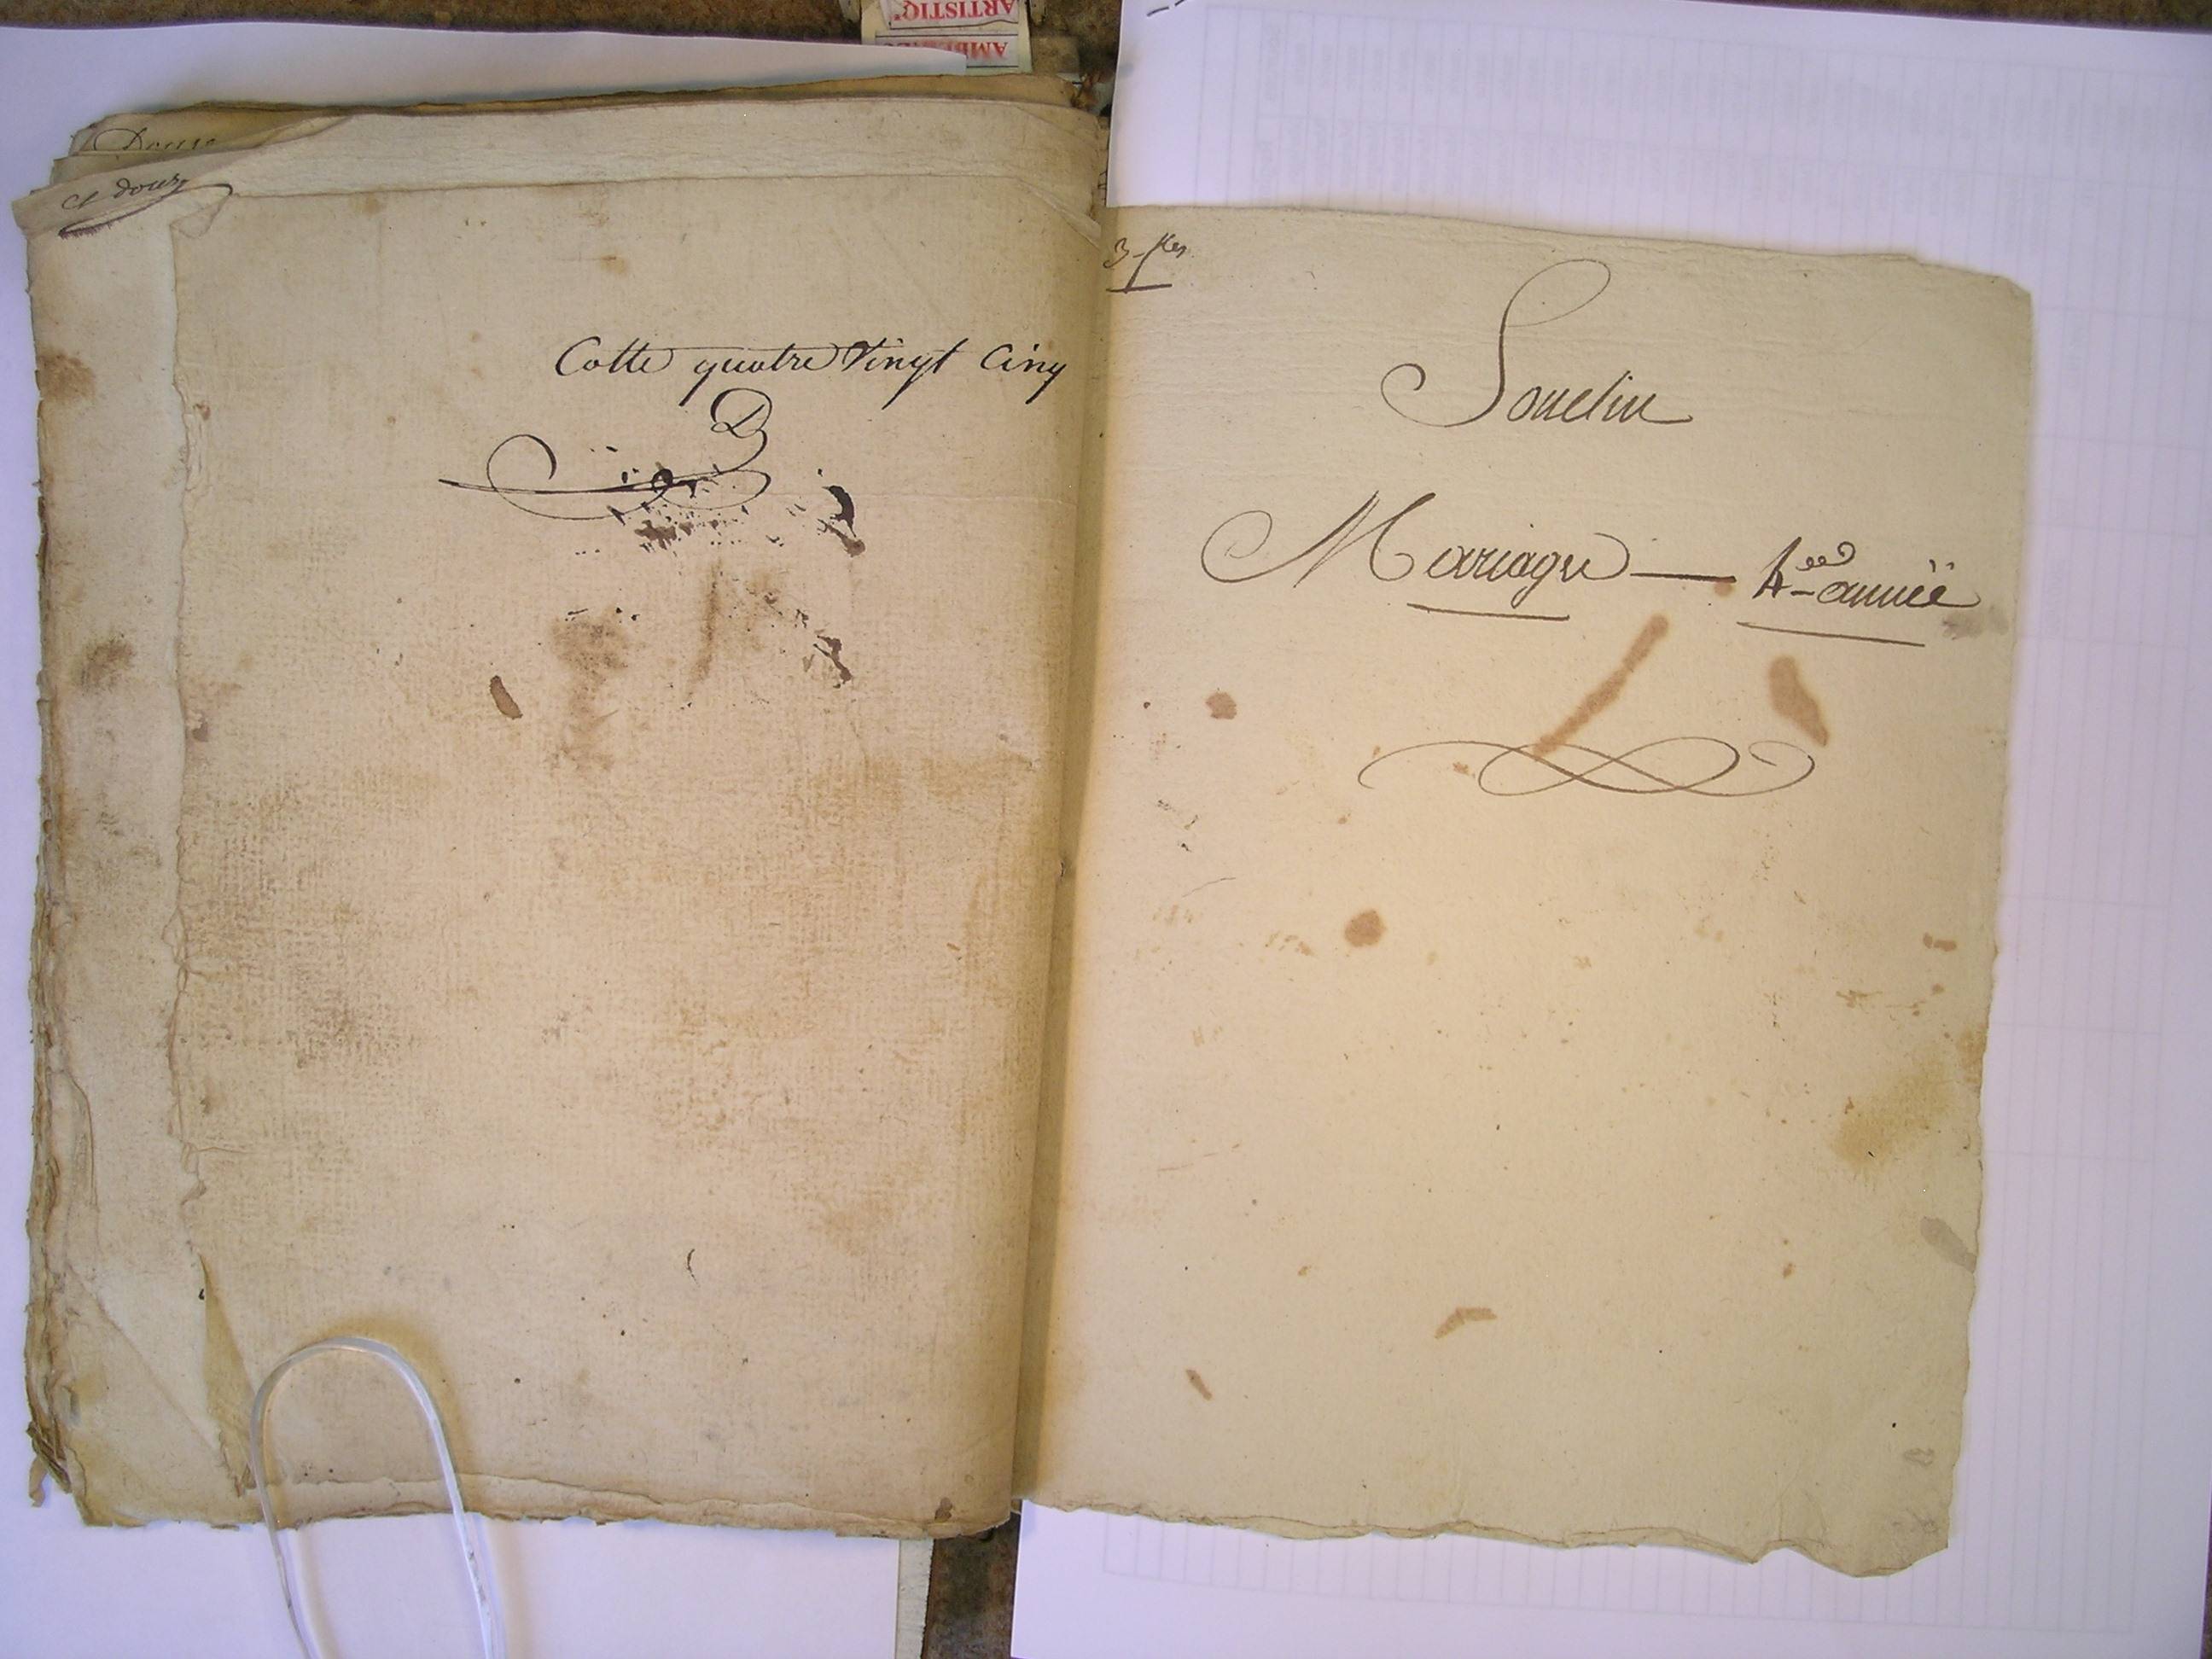 ARTISTIQ'
Douze
et douze
Cotte quatre Vingt Cinq
3 - fles
Sourlin
Mariage — 4eme année